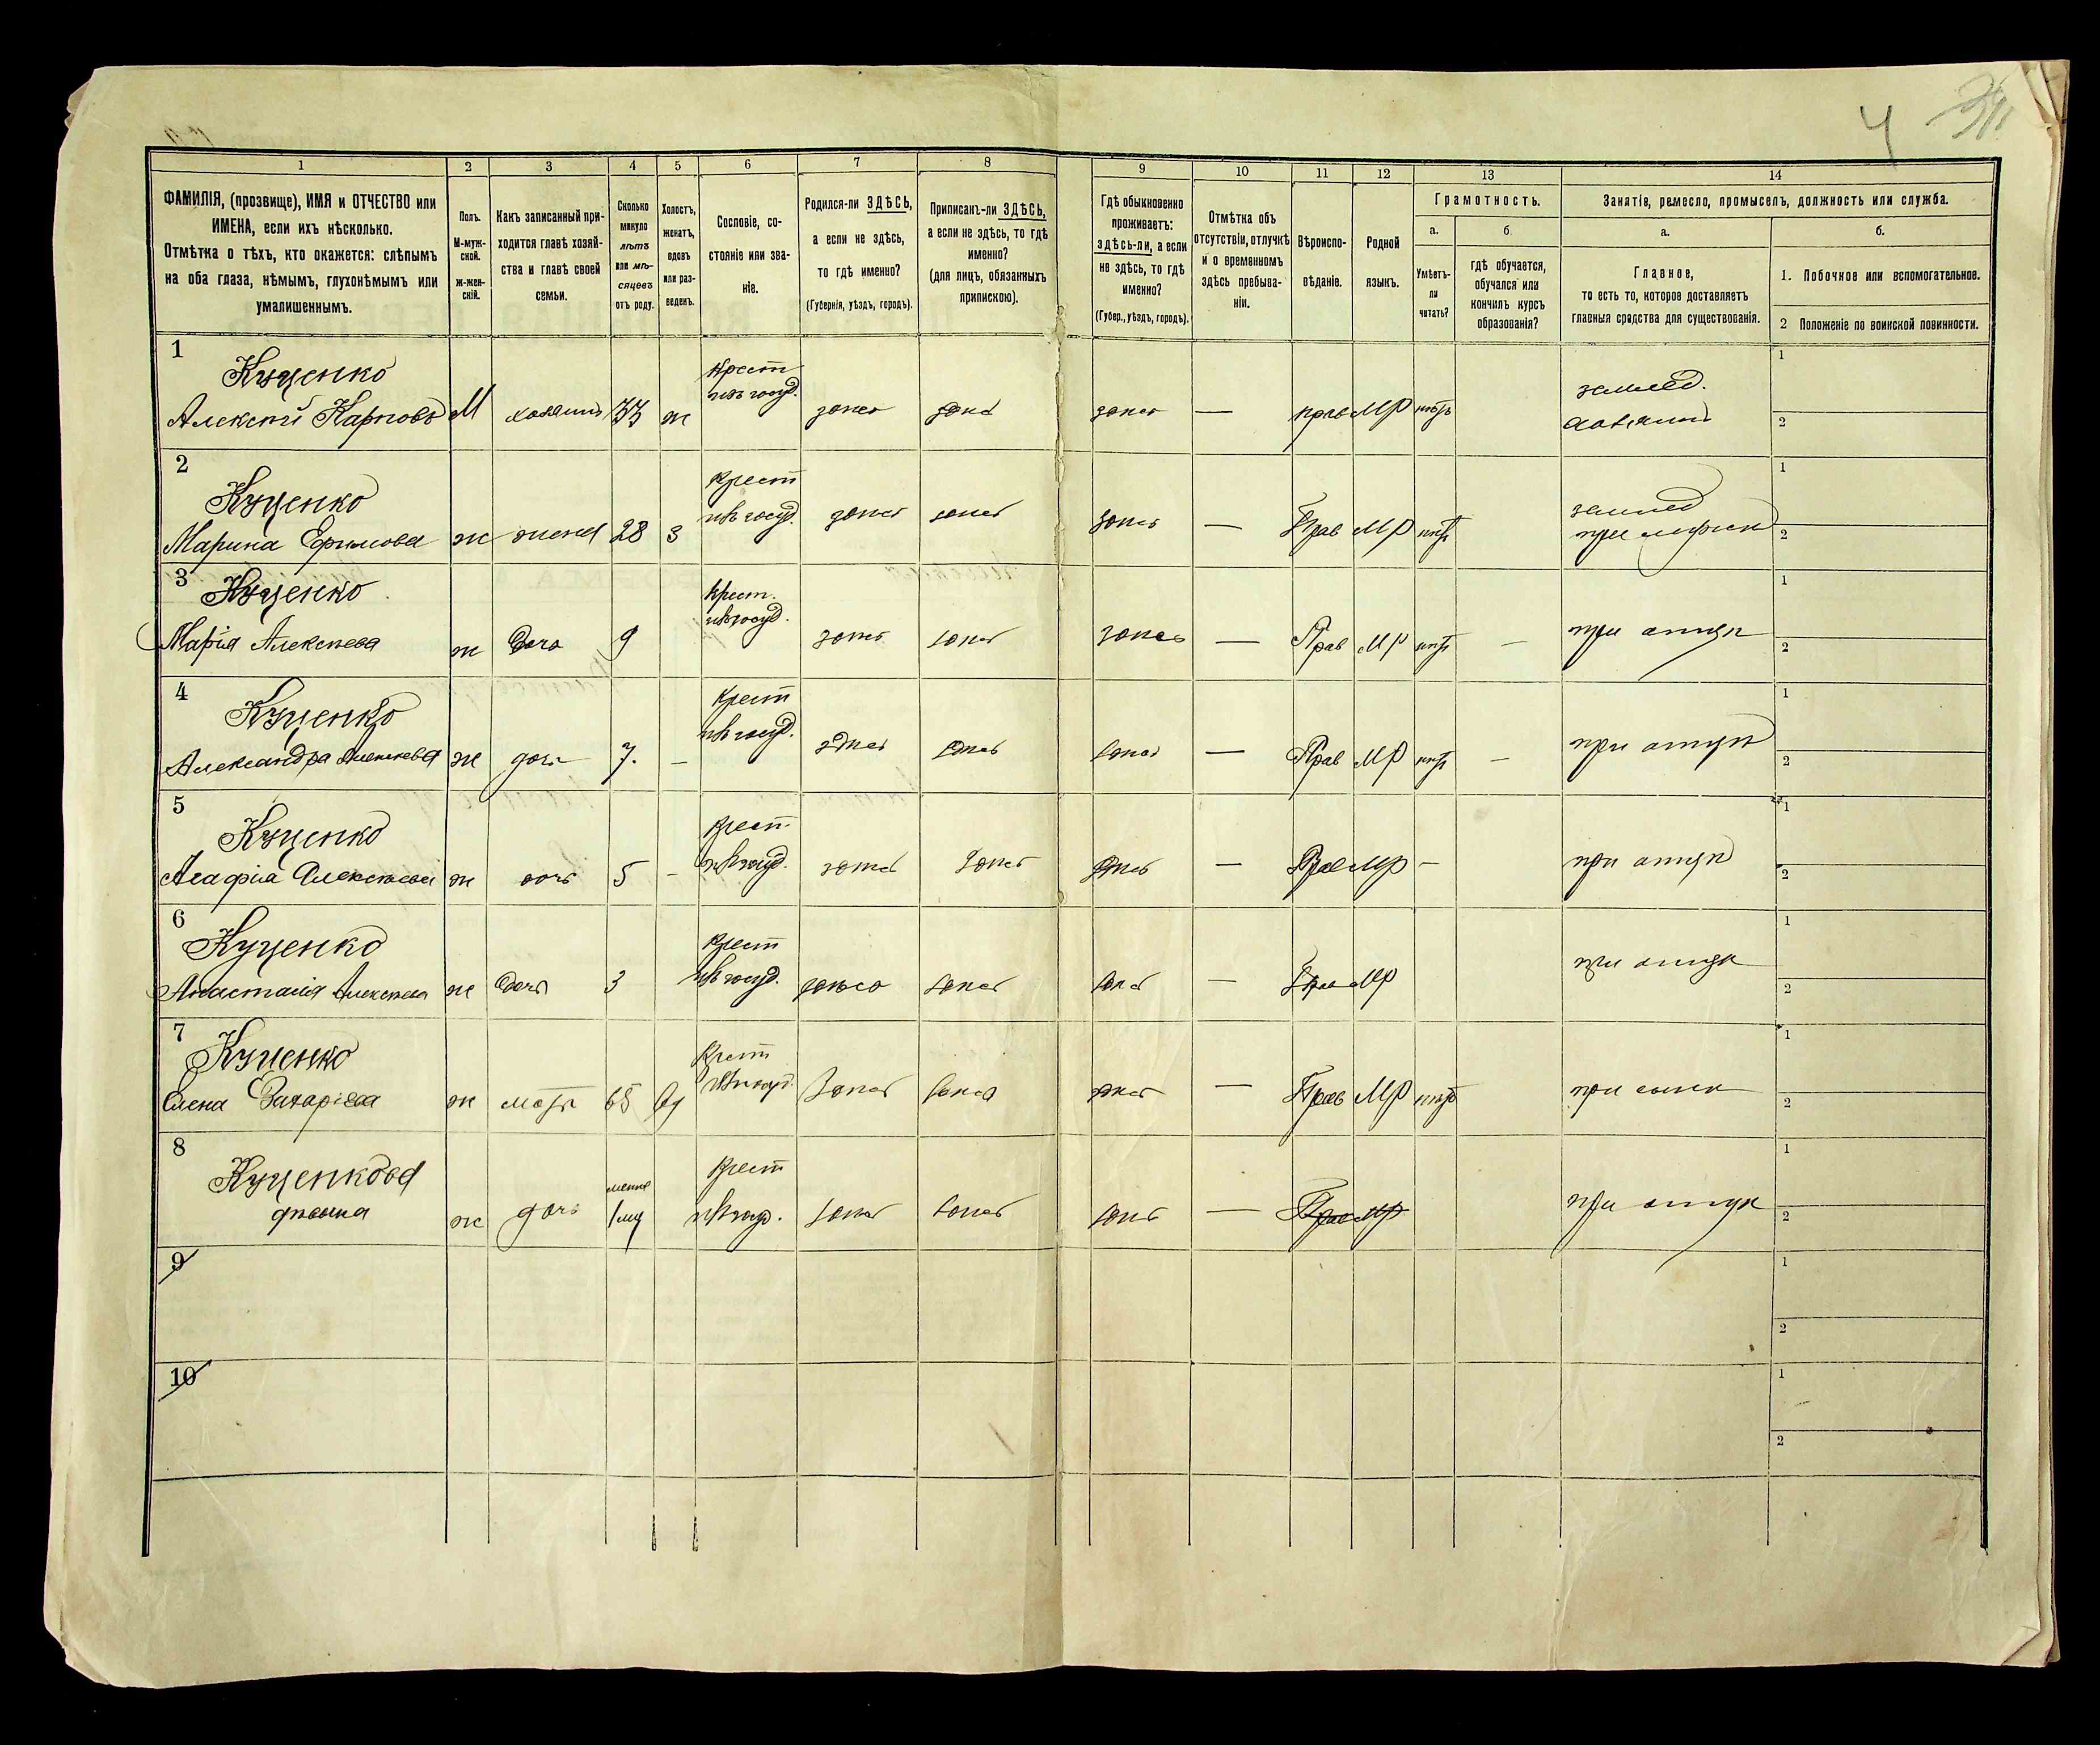 4
1 2 3 4 5 6 7 8 9 10 11 12 13 14
ФАМИЛІЯ, (прозвище), ИМЯ и ОТЧЕСТВО или
ИМЕНА, если ихъ нѣсколько.
Отмѣтка о тѣхъ, кто окажется: слѣпымъ
на оба глаза, нѣмымъ, глухонѣмымъ или
умалишеннымъ.
Полъ.
М-муж-
ской.
ж-жен-
скій.
Какъ записанный при-
ходится главѣ хозяй-
ства и главѣ своей
семьи.
Сколько
минуло
лѣтъ
или мѣ-
сяцевъ
отъ роду.
Холостъ,
женатъ,
вдовъ
или раз-
веденъ.
Сословіе, со-
стояніе или зва-
ніе.
Родился-ли ЗДѢСЬ,
а если не здѣсь,
то гдѣ именно?
(Губернія, уѣздъ, городъ).
Приписанъ-ли ЗДѢСЬ,
а если не здѣсь, то гдѣ
именно?
(для лицъ, обязанныхъ
припискою).
Гдѣ обыкновенно
проживаетъ:
здѣсь-ли, а если
не здѣсь, то гдѣ
именно?
(Губер., уѣздъ, городъ).
Отмѣтка объ
отсутствіи, отлучкѣ
и о временномъ
здѣсь пребыва-
ніи.
Вѣроиспо-
вѣданіе.
Родной
языкъ.
Грамотность.
а.
Умѣетъ-
ли
читать?
б.
гдѣ обучается,
обучался или
кончилъ курсъ
образованія?
Занятіе, ремесло, промыселъ, должность или служба.
а.
Главное,
то есть то, которое доставляетъ
главныя средства для существованія.
б.
1. Побочное или вспомогательное.
2 Положеніе по воинской повинности.
1
Куценко Крест землед. 1
Алексѣй Карповъ М хозяинъ 33 ж изъ госуд. здѣсь здѣсь здѣсь — прав МР нѣтъ хозяинъ 2
2
Куценко Крест землед 1
Марина Ефимова ж жена 28 з изъ госуд. здѣсь здѣсь здѣсь — Прав МР нѣтъ при мужѣ 2
3
Куценко Крест. 1
Марія Алексѣева ж дочь 9 изъ госуд. здѣсь здѣсь здѣсь — Прав МР нѣтъ — при отцѣ 2
4
Куценко Крест 1
Александра Алексѣева ж дочь 7. — изъ госуд. здѣсь здѣсь здѣсь — Прав МР нѣтъ — при отцѣ 2
5
Куценко Крест 1
Агафіа Алексѣева ж дочь 5 — изъ госуд. здѣсь здѣсь здѣсь — Прав МР — при отцѣ 2
6
Куценко Крест 1
Анастасія Алексѣева ж дочь 3 изъ госуд. здѣсь здѣсь здѣсь — Прав МР при отцѣ 2
7
Куценко Крест 1
Елена Захаріева ж мать 65 вд изъ госуд. здѣсь здѣсь здѣсь — Прав МР нѣтъ при сынѣ 2
8
Куценкова менѣе Крест 1
ж дочь 1 изъ госуд. здѣсь здѣсь здѣсь — Прав МР при отцѣ 2
9 1
2
10 1
2